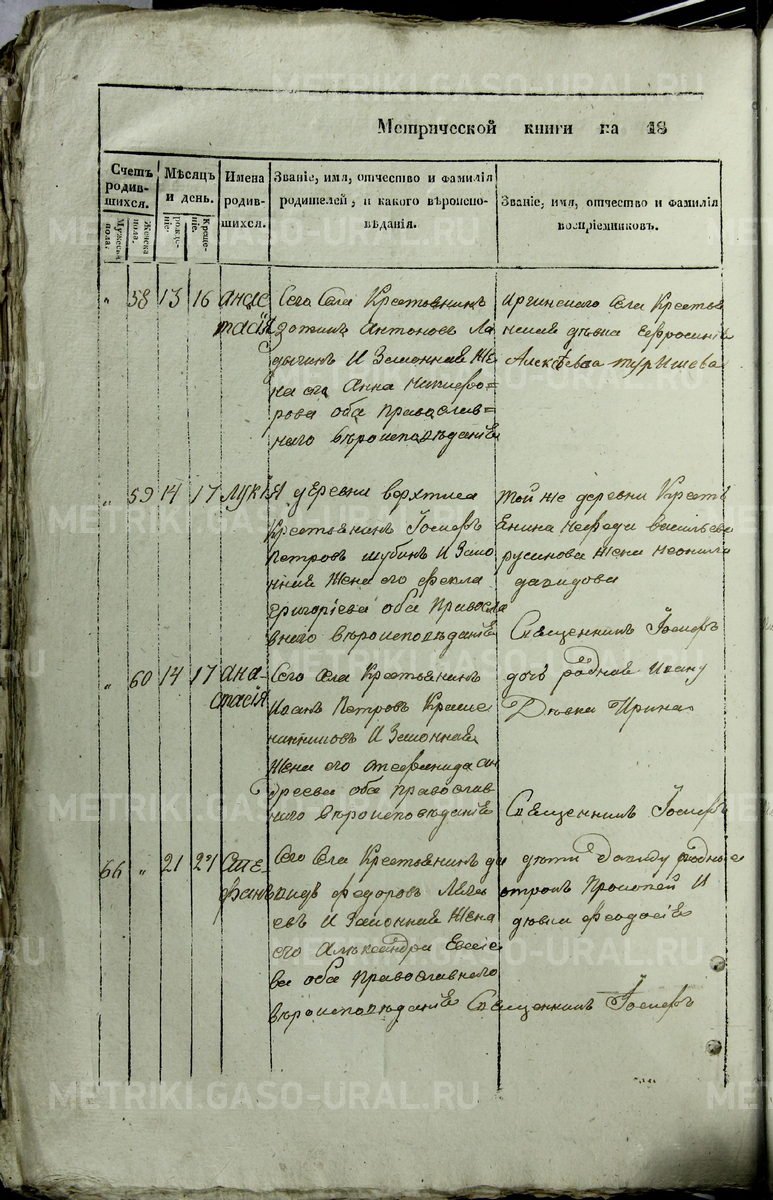 METRIKI.GASO-URAL.RU
Метрической книги на 18
Счетъ родив-шихся.
Мужеска пола.
Женска пола.
Мѣсяцъ и день.
рожде-ніе.
Креще-ніе.
Имена родив-шихся.
Званіе, имя, отчество и фамилія
родителей, и какого вѣроиспо-
вѣданія.
Званіе, имя, отчество и фамилія
воспріемниковъ.
" 58 13 16
Анас
тасія
Сего Села Крестьянинъ
Антоновъ Ла
дыгинъ И Законная Же
на его Анна Никифо=
рова оба Православ=
наго вѣроисповѣданія
Иргинскаго Села Крестья
нская дѣвка Ефросинія
Алексѣева
" 59 14 17
Лукія
деревни верхтиса
Крестьянинъ Іосифъ
Петровъ шубинъ И Зако
нная Жена его фекла
григоріева оба Правосла
внаго вѣроисповѣданія
той же деревни Крестья
нина нефеда васильева
русинова Жена неонила
давидова
Священникъ Іосифъ
" 60 14 17
Ана-
стасія
Сего Села Крестьянинъ
Иоанъ Петровъ
И Законная
Жена его стефанида ан
дреева оба Православ
наго вѣроисповѣданія
дочь родная Ивану
Дѣвка Ирина
Священникъ Іосифъ
66 " 21 24
Сте-
фанъ
Сего Села Крестьянинъ да
видъ федоровъ
И Законная Жена
его Александра Евсіе
ва оба Православнаго
вѣроисповѣданія
дѣти Давиду родные
отрокъ Прокопей И
дѣвка феодосія
Священникъ Іосифъ